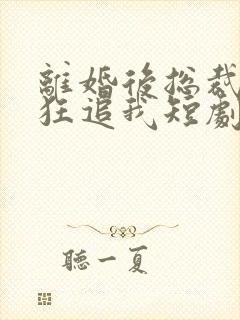 離婚後總裁
狂追我短劇
聽一夏